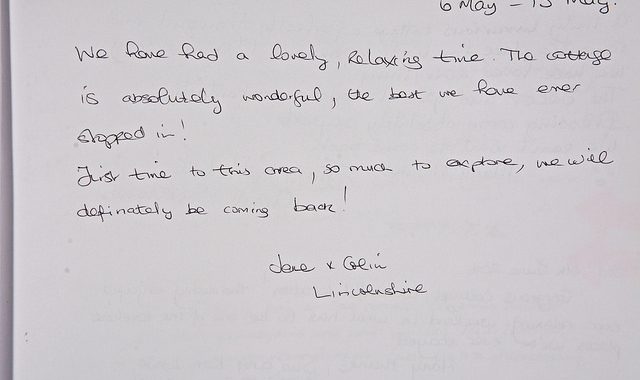 6 May - 13 May.
We have had a lovely, Relaxing time. The cottage
is absolutely wonderful, the best we have ever
stopped in!
First time to this area, so much to explore, we will
definately be coming back!
Jane & Colin
Lincolnshire